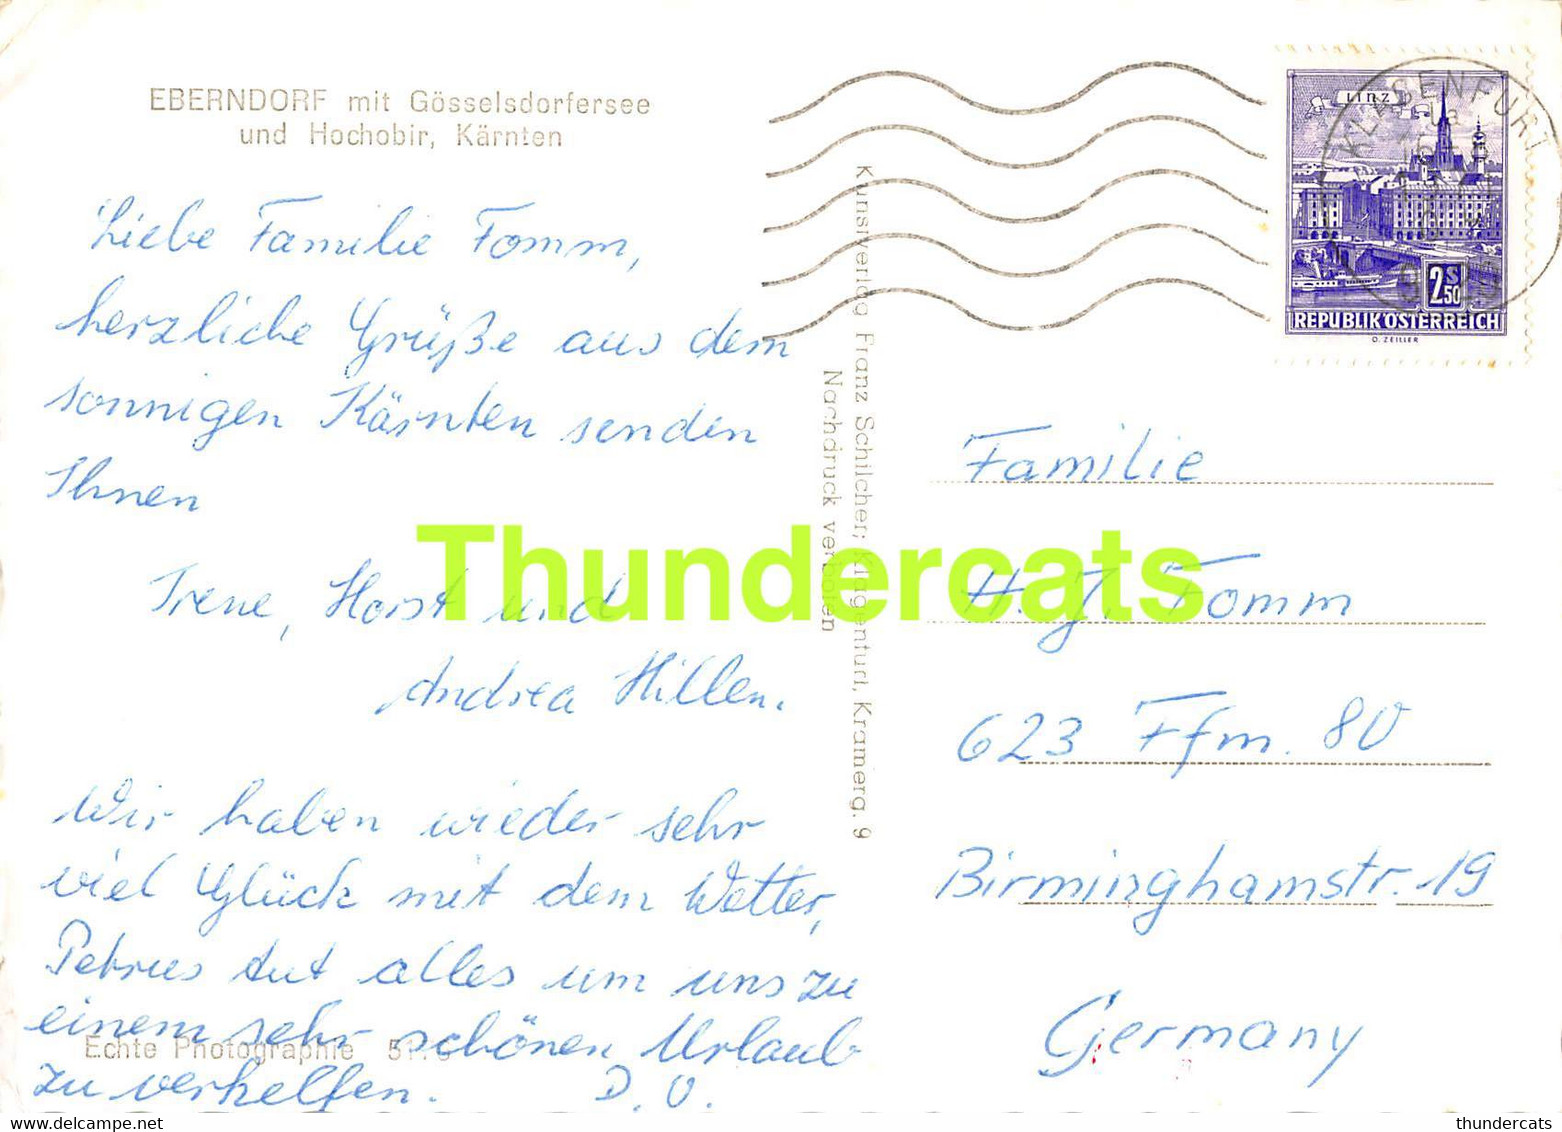 EBERNDORF mit Gösselsdorfersee
und Hochobir, Kärnten
Liebe Familie Fomm,
herzliche Grüße aus dem
sonnigen Kärnten senden
Ihnen
Irene, Horst und
Andrea Hillen.
Wir haben wieder sehr
viel Glück mit dem Wetter,
Petrus tut alles um uns zu
einem sehr schönen Urlaub
zu verhelfen. D. O.
Echte Photographie
Kunstverlag Franz Schilcher, Klagenfurt, Kramerg. 9
Nachdruck verboten
KLAGENFURT
LINZ
2 S 50
REPUBLIK ÖSTERREICH
O. ZEILLER
Familie
H. J. Fomm
623 Ffm. 80
Birminghamstr. 19
Germany
Thundercats
thundercats
delcampe.net